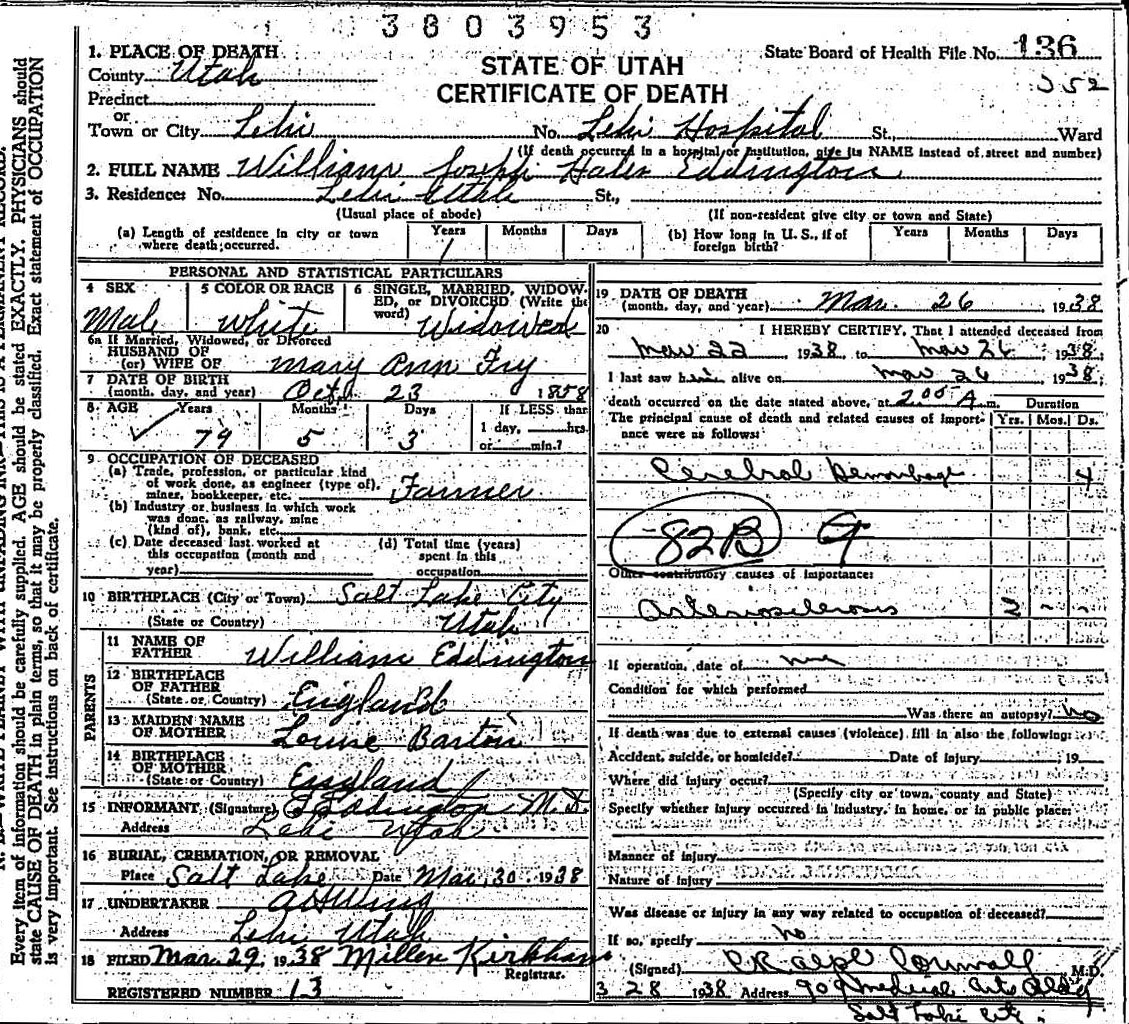 3803953
1. PLACE OF DEATH
County Utah
Precinct
or
Town or City Lehi No. Lehi Hospital St., Ward
(If death occurred in a hospital or institution, give its NAME instead of street and number)
STATE OF UTAH
CERTIFICATE OF DEATH
State Board of Health File No. 136
352
2. FULL NAME William Joseph Hales Eddington
3. Residence: No. Lehi Utah St.,
(Usual place of abode) (If non-resident give city or town and State)
(a) Length of residence in city or town where death occurred. Years 1 Months Days
(b) How long in U. S., if of foreign birth? Years Months Days
PERSONAL AND STATISTICAL PARTICULARS
4 SEX Male
5 COLOR OR RACE White
6 SINGLE, MARRIED, WIDOWED, or DIVORCED (Write the word) Widowed
6a If Married, Widowed, or Divorced
HUSBAND OF
(or) WIFE OF Mary Ann Fry
7 DATE OF BIRTH
(month, day, and year) Oct. 23 1858
8 AGE Years 79 Months 5 Days 3
If LESS than
1 day, hrs.
or min.?
9 OCCUPATION OF DECEASED
(a) Trade, profession, or particular kind
of work done, as engineer (type of),
miner, bookkeeper, etc. Farmer
(b) Industry or business in which work
was done, as railway, mine
(kind of), bank, etc.
(c) Date deceased last worked at
this occupation (month and
year)
(d) Total time (years)
spent in this
occupation
10 BIRTHPLACE (City or Town) Salt Lake City
(State or Country) Utah
PARENTS
11 NAME OF
FATHER William Eddington
12 BIRTHPLACE
OF FATHER
(State or Country) England
13 MAIDEN NAME
OF MOTHER Louise Barton
14 BIRTHPLACE
OF MOTHER
(State or Country) England
15 INFORMANT (Signature) Eddington M.D.
Address Lehi Utah
16 BURIAL, CREMATION, OR REMOVAL
Place Salt Lake Date Mar. 30 1938
17 UNDERTAKER A H Wing
Address Lehi Utah
18 FILED Mar. 29, 1938 Millen Kirkham
Registrar.
REGISTERED NUMBER 13
19 DATE OF DEATH
(month, day, and year) Mar. 26 1938
20 I HEREBY CERTIFY, That I attended deceased from
Mar 22 1938 to Mar 26 1938
I last saw him alive on Mar 26 1938
death occurred on the date stated above, at 2:00 A m. Duration
The principal cause of death and related causes of importance were as follows: Yrs. Mos. Ds.
Cerebral Hemorrhage 4
82B 9
Other contributory causes of importance:
Arteriosclerosis 2 - -
If operation, date of none
Condition for which performed
Was there an autopsy? no
If death was due to external causes (violence) fill in also the following:
Accident, suicide, or homicide? Date of injury 19
Where did injury occur?
(Specify city or town, county and State)
Specify whether injury occurred in industry, in home, or in public place:
Manner of injury
Nature of injury
Was disease or injury in any way related to occupation of deceased?
If so, specify no
(Signed) Ralph Cornwall M.D.
3 28 1938 Address 909 Medical Arts Bldg
Salt Lake City
Every item of information should be carefully supplied. AGE should be stated EXACTLY. PHYSICIANS should
state CAUSE OF DEATH in plain terms, so that it may be properly classified. Exact statement of OCCUPATION
is very important. See instructions on back of certificate.